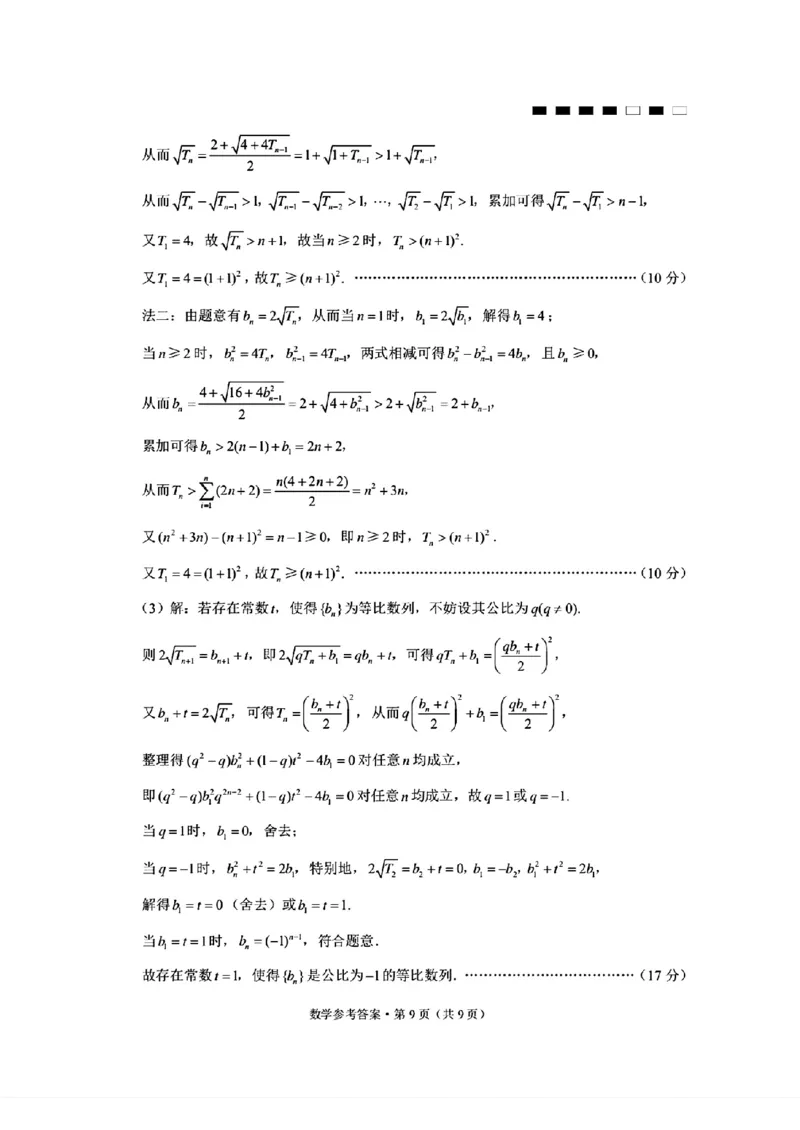 从而√T_n = (2+√(4+4T_{n-1}))/2 = 1+√(1+T_{n-1}) > 1+√T_{n-1},
从而√T_n − √T_{n-1} > 1, √T_{n-1} − √T_{n-2} > 1, ⋯, √T_2 − √T_1 > 1, 累加可得√T_n − √T_1 > n−1,
又T_1 = 4, 故√T_n > n+1, 故当n ≥ 2时, T_n > (n+1)^2.
又T_1 = 4 = (1+1)^2, 故T_n ≥ (n+1)^2. ……………………………………………………(10 分)
法二：由题意有b_n = 2√T_n, 从而当n = 1时, b_1 = 2√b_1, 解得b_1 = 4；
当n ≥ 2时, b_n^2 = 4T_n, b_{n-1}^2 = 4T_{n-1}, 两式相减可得b_n^2 − b_{n-1}^2 = 4b_n, 且b_n ≥ 0,
从而b_n = (4+√(16+4b_{n-1}^2))/2 = 2+√(4+b_{n-1}^2) > 2+√(b_{n-1}^2) = 2+b_{n-1},
累加可得b_n > 2(n−1)+b_1 = 2n+2,
从而T_n > ∑_{t=1}^{n}(2n+2) = n(4+2n+2)/2 = n^2+3n,
又(n^2+3n)−(n+1)^2 = n−1 ≥ 0, 即n ≥ 2时, T_n > (n+1)^2.
又T_1 = 4 = (1+1)^2, 故T_n ≥ (n+1)^2. ……………………………………………………(10 分)
（3）解：若存在常数t, 使得{b_n}为等比数列, 不妨设其公比为q(q ≠ 0).
则2√T_{n+1} = b_{n+1}+t, 即2√(qT_n+b_1) = qb_n+t, 可得qT_n+b_1 = ((qb_n+t)/2)^2,
又b_n+t = 2√T_n, 可得T_n = ((b_n+t)/2)^2, 从而q((b_n+t)/2)^2+b_1 = ((qb_n+t)/2)^2,
整理得(q^2−q)b_n^2+(1−q)t^2−4b_1 = 0对任意n均成立,
即(q^2−q)b_1^2q^{2n−2}+(1−q)t^2−4b_1 = 0对任意n均成立, 故q = 1或q = −1.
当q = 1时, b_1 = 0, 舍去；
当q = −1时, b_n^2+t^2 = 2b_1, 特别地, 2√T_2 = b_2+t = 0, b_1 = −b_2, b_1^2+t^2 = 2b_1,
解得b_1 = t = 0（舍去）或b_1 = t = 1.
当b_1 = t = 1时, b_n = (−1)^{n−1}, 符合题意.
故存在常数t = 1, 使得{b_n}是公比为−1的等比数列. ………………………………(17 分)
数学参考答案·第 9 页（共 9 页）